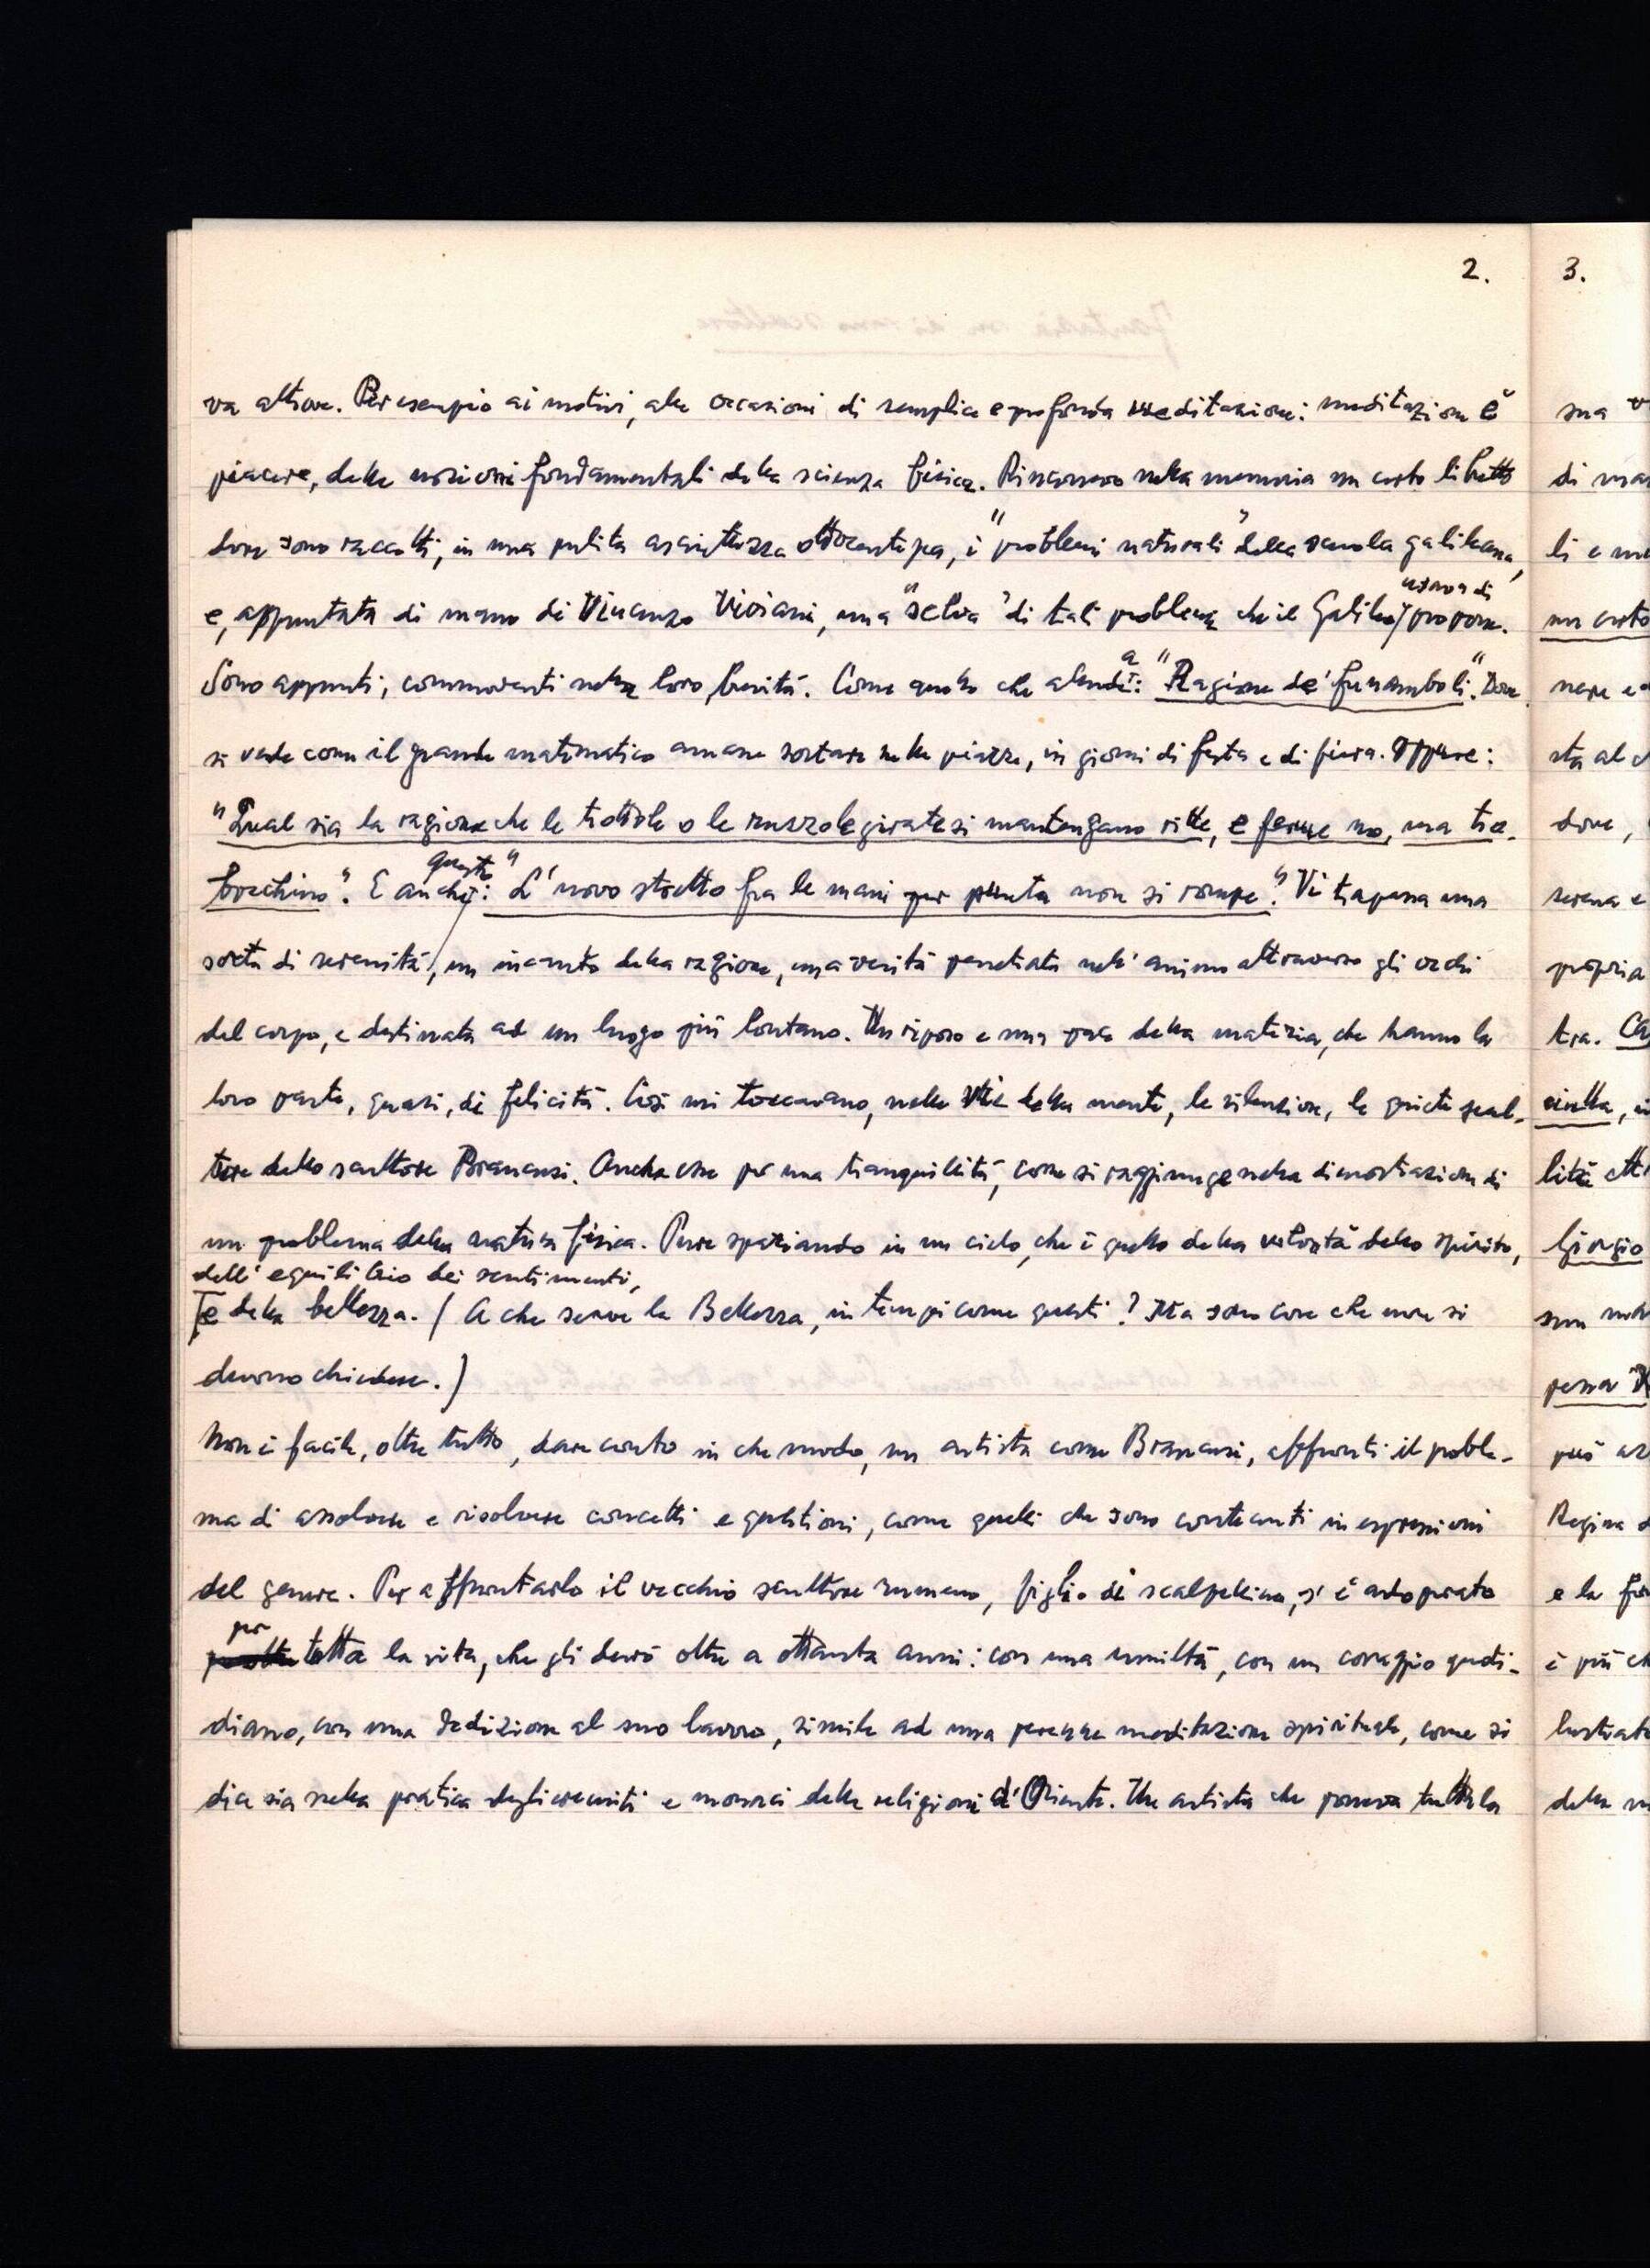 2.
va altrove. Per esempio ai motivi, alle occasioni di semplice e profonda meditazione: meditazione e
piacere, delle nozioni fondamentali della scienza fisica. Rincorrevo nella memoria un certo libretto
dove sono raccolti, in una pulita asciuttezza ottocentesca, i "problemi naturali" della scuola galileiana,
e, appuntata di mano di Vincenzo Viviani, una "selva" di tali problemi che il Galileo usava di proporre.
Sono appunti, commoventi nella loro brevità. Come quello che allude a: "Ragione de' funamboli". Dove
si vede come il grande matematico amasse sostare nelle piazze, in giorni di festa e di fiera. Oppure:
"Qual sia la ragione che le trottole o le ruzzole girate si mantengano ritte, e ferme no, ma tra-
bocchino". E anche questo: "L'uovo stretto fra le mani per punta non si rompe". Vi trapassa una
sorta di serenità, un incanto della ragione, una verità penetrata nell'animo attraverso gli occhi
del corpo, e destinata ad un luogo più lontano. Un riposo e una pace della materia, che hanno la
loro parte, quasi, di felicità. Così mi toccavano, nelle vie della mente, le silenziose, le quiete scul-
ture dello scultore Brancusi. Anche esse per una tranquillità, come si raggiunge nella dimostrazione di
un problema della natura fisica. Pure spaziando in un cielo, che è quello della volontà dello spirito,
dell'equilibrio dei sentimenti,
e della bellezza. (A che serve la Bellezza, in tempi come questi? Ma sono cose che non si
devono chiedere.)
Non è facile, oltre tutto, dare conto in che modo, un artista come Brancusi, affronti il proble-
ma di assolvere e risolvere concetti e questioni, come quelli che sono contenuti in espressioni
del genere. Per affrontarlo il vecchio scultore rumeno, figlio di scalpellino, s'è adoprato
per tutta la vita, che gli durò oltre a ottanta anni: con una umiltà, con un coraggio quoti-
diano, con una dedizione al suo lavoro, simile ad una perenne meditazione spirituale, come si
dice sia nella pratica degli eremiti e monaci delle religioni d'Oriente. Un artista che poneva tutta la
3.
sua
di
li e
un certo
nere e
sta al
dove,
serena e
propria
tra.
lità
Giorgio
può
Regina
e la
è più
della